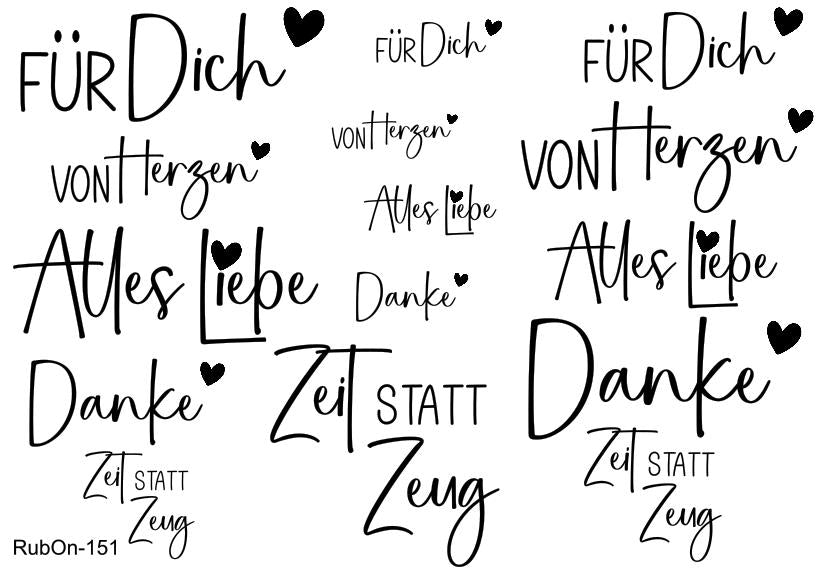 FÜR Dich
VON Herzen
Alles Liebe
Danke
Zeit STATT
Zeug
RubOn-151
FÜR Dich
VON Herzen
Alles Liebe
Danke
Zeit STATT
Zeug
FÜR Dich
VON Herzen
Alles Liebe
Danke
Zeit STATT
Zeug